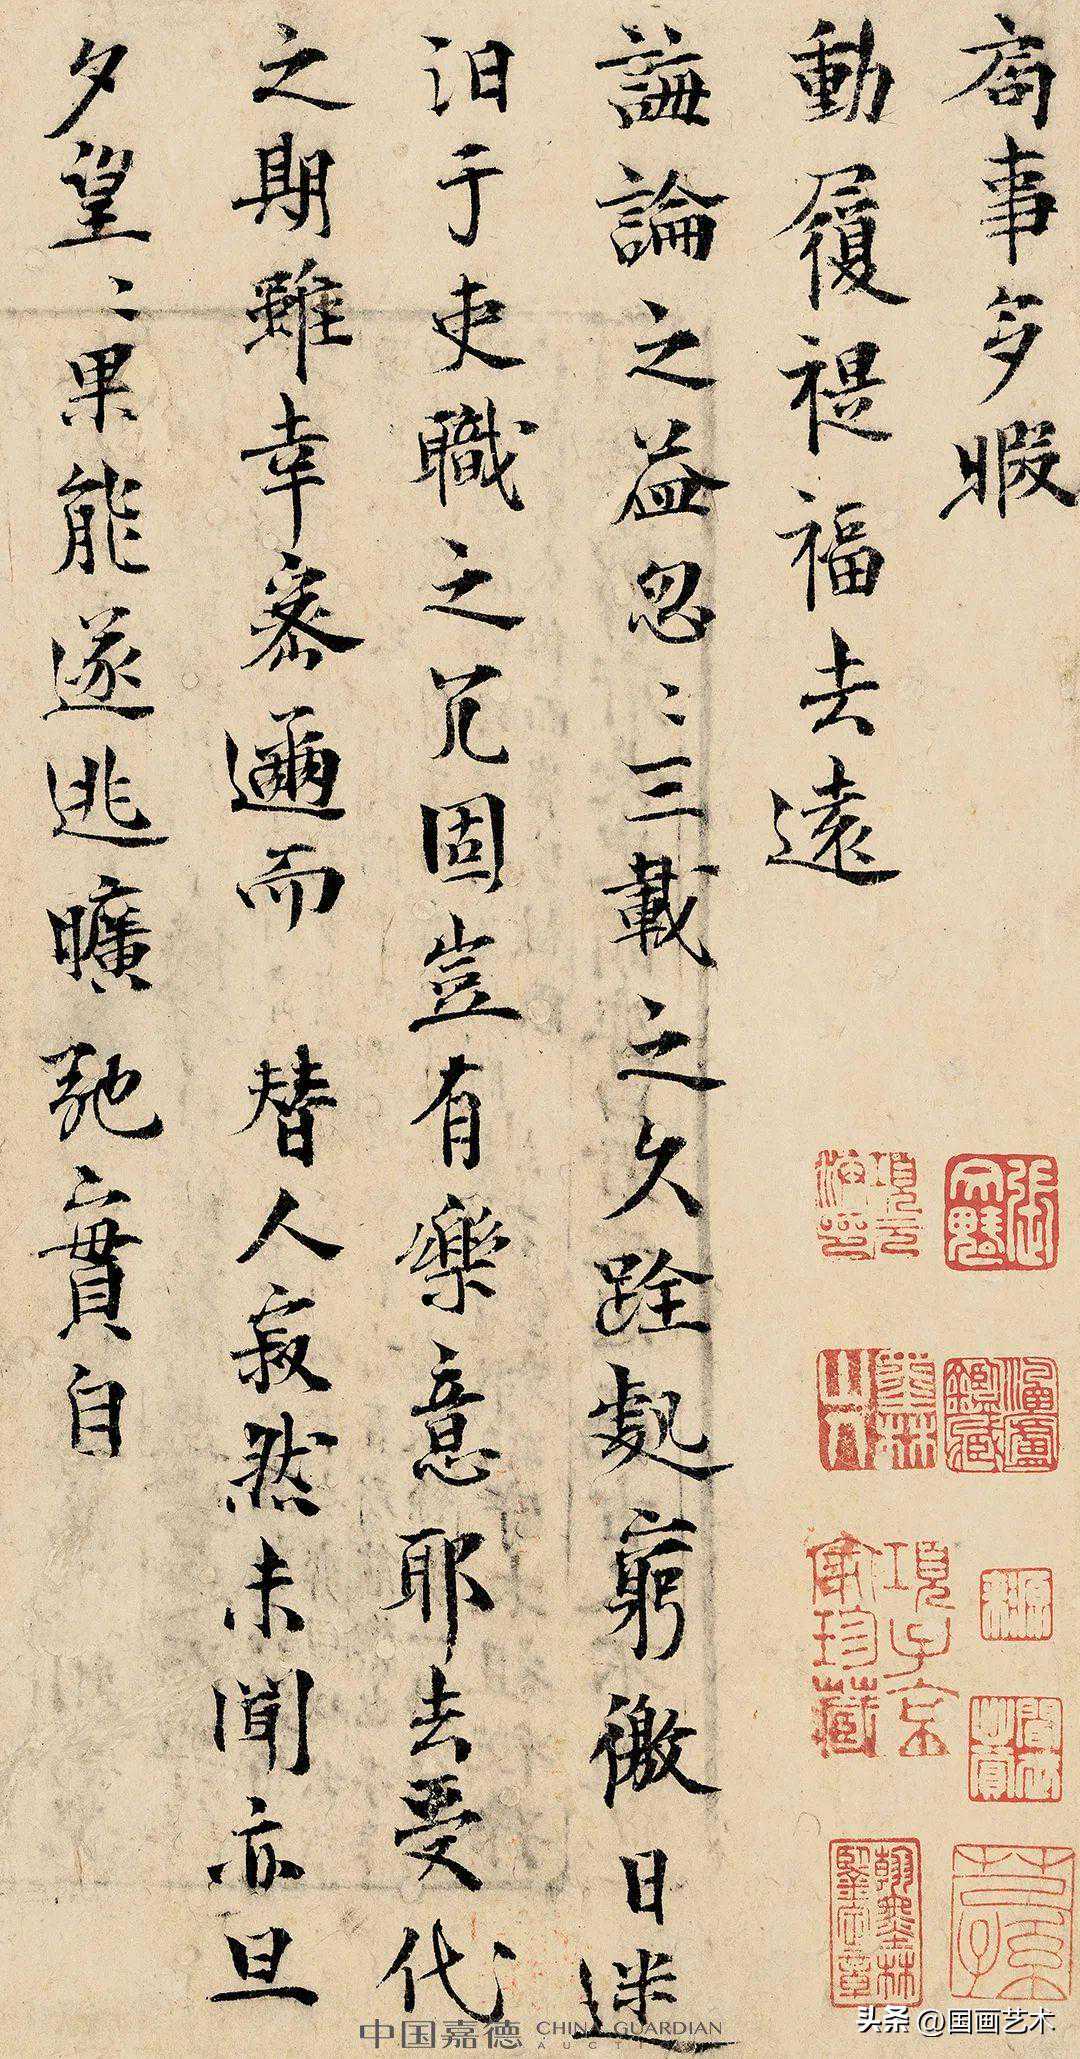 局事多暇
動履禔福去遠
誨論之益忽〻三載之久跧處窮徼日迷
汨于吏職之冗固豈有樂意耶去受代
之期雖幸密邇而 替人寂然未聞亦旦
夕望〻果能遂逃曠弛實自
項子京
家珍藏
中国嘉德 CHINA GUARDIAN
AUCTIONS
头条 @国画艺术